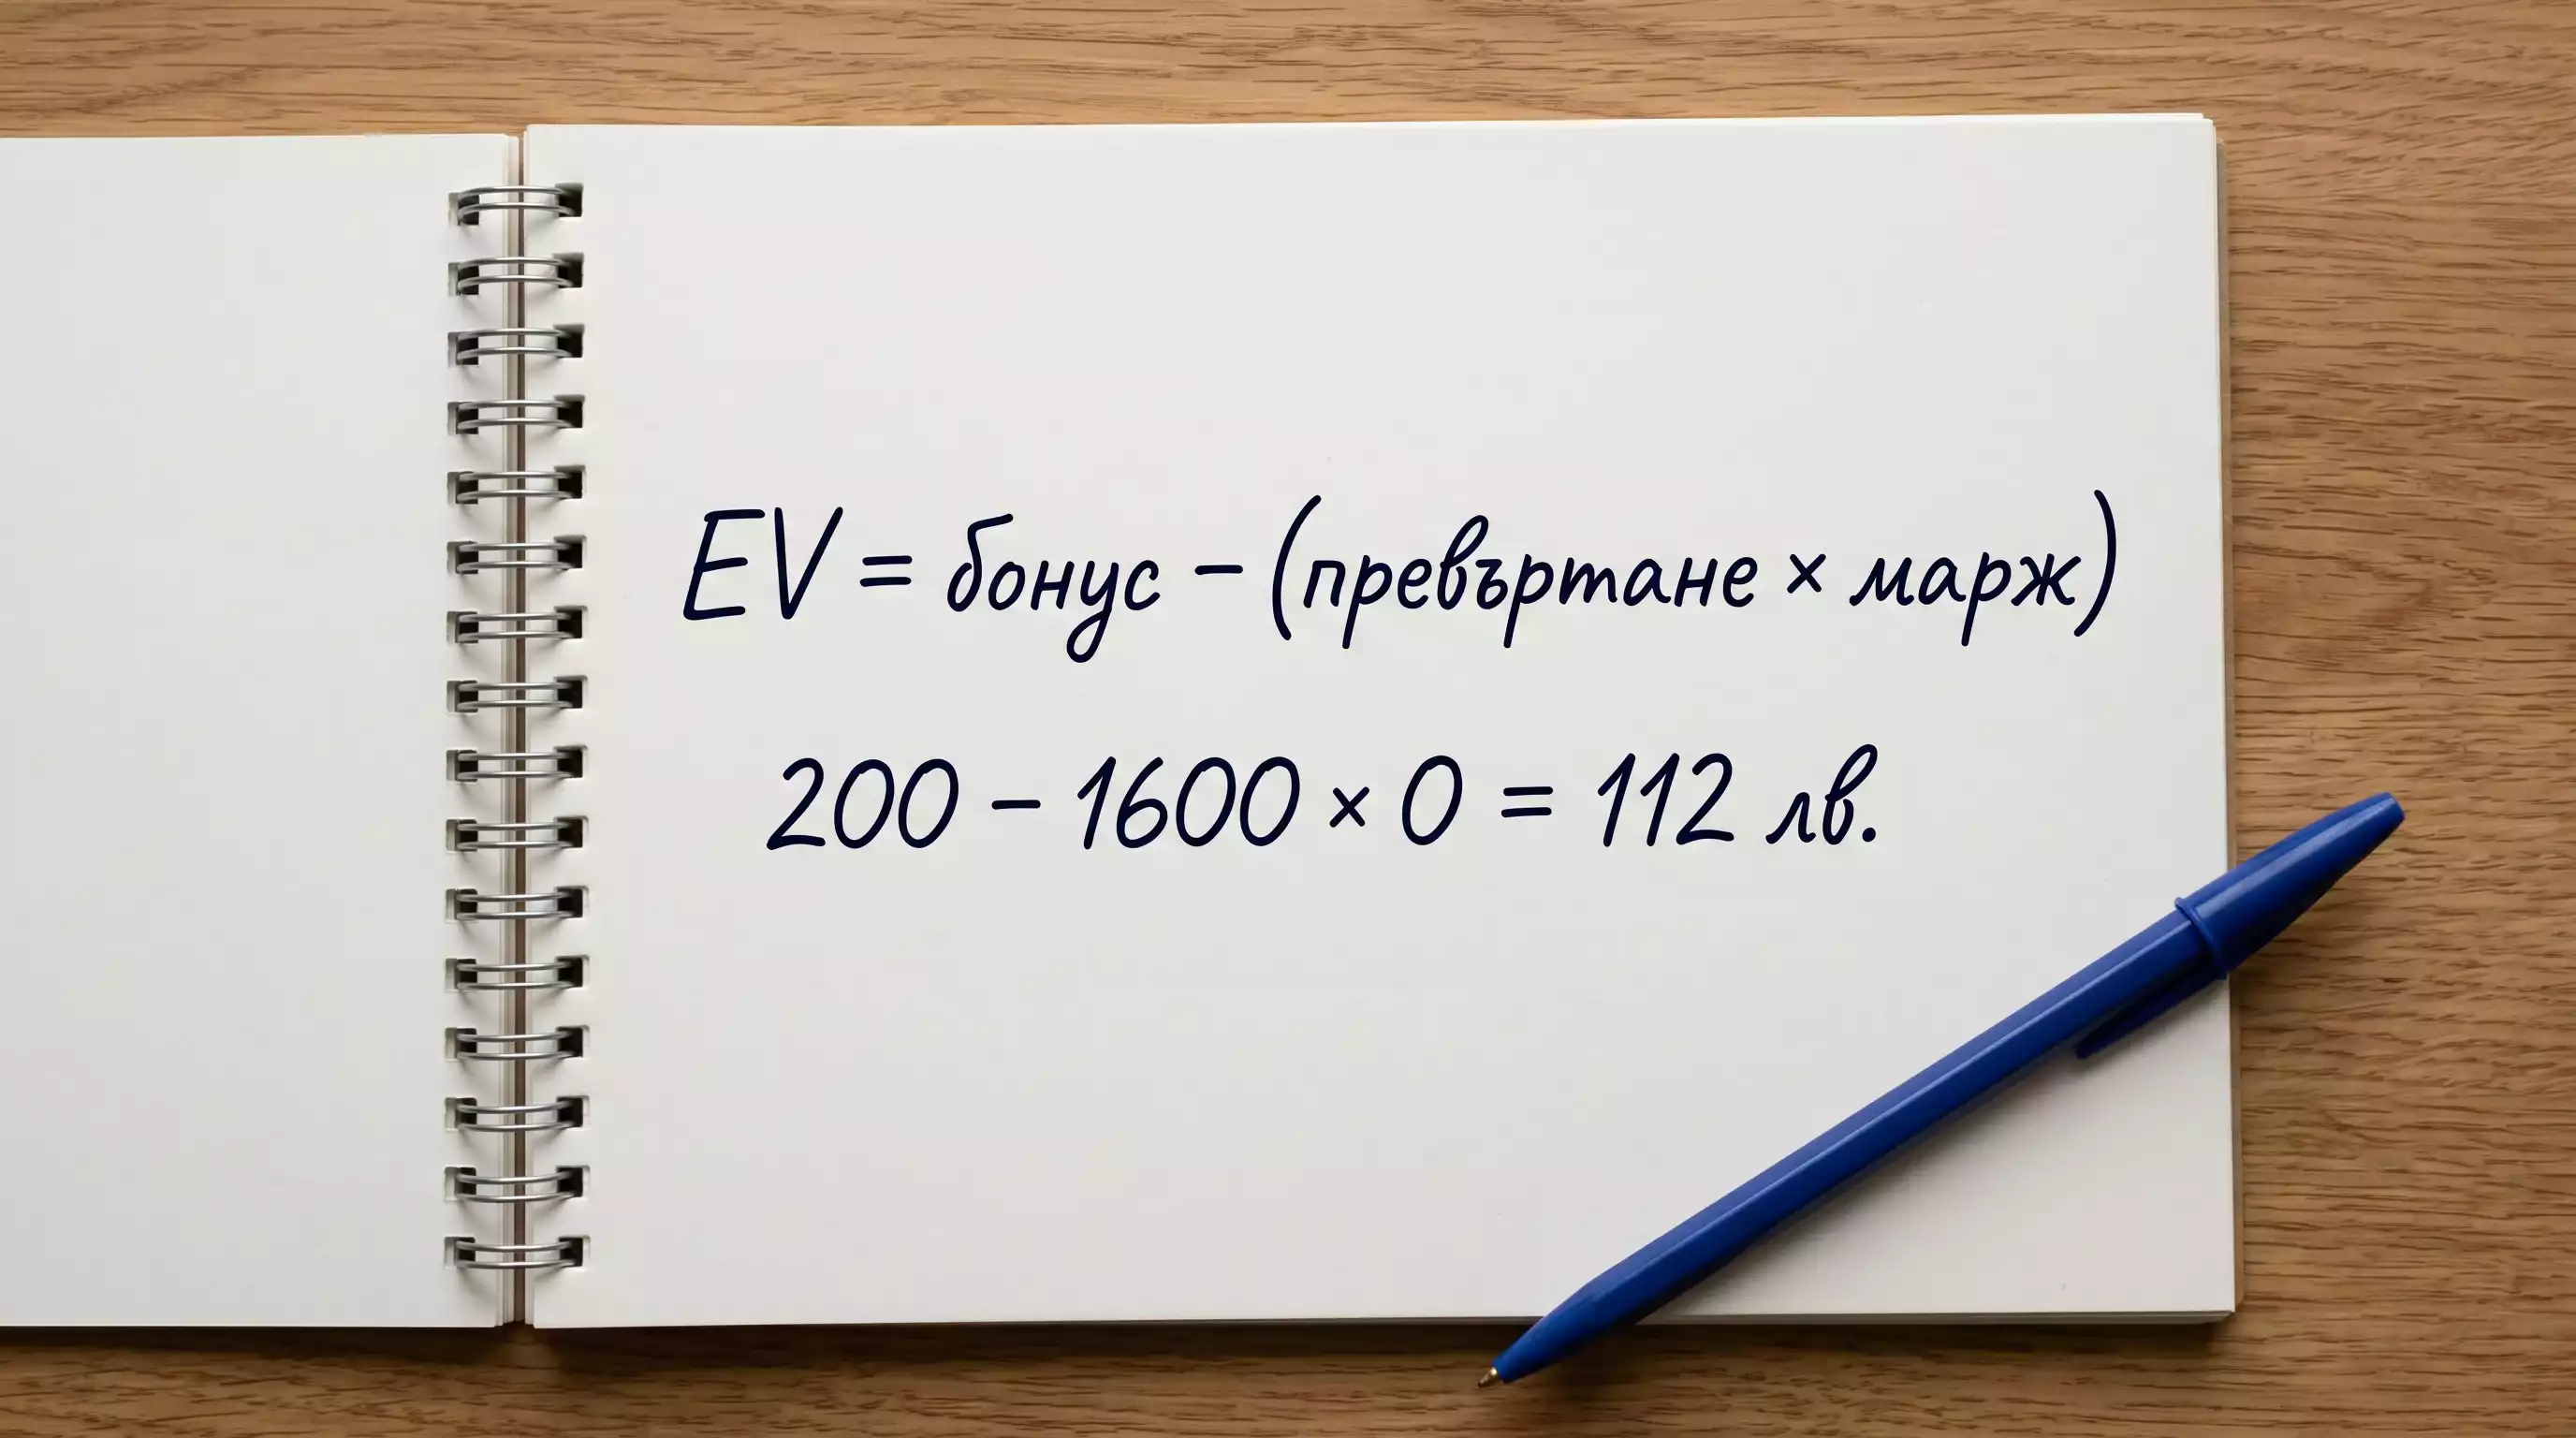 EV = бонус − (превъртане × марж)
200 − 1600 × 0 = 112 лв.